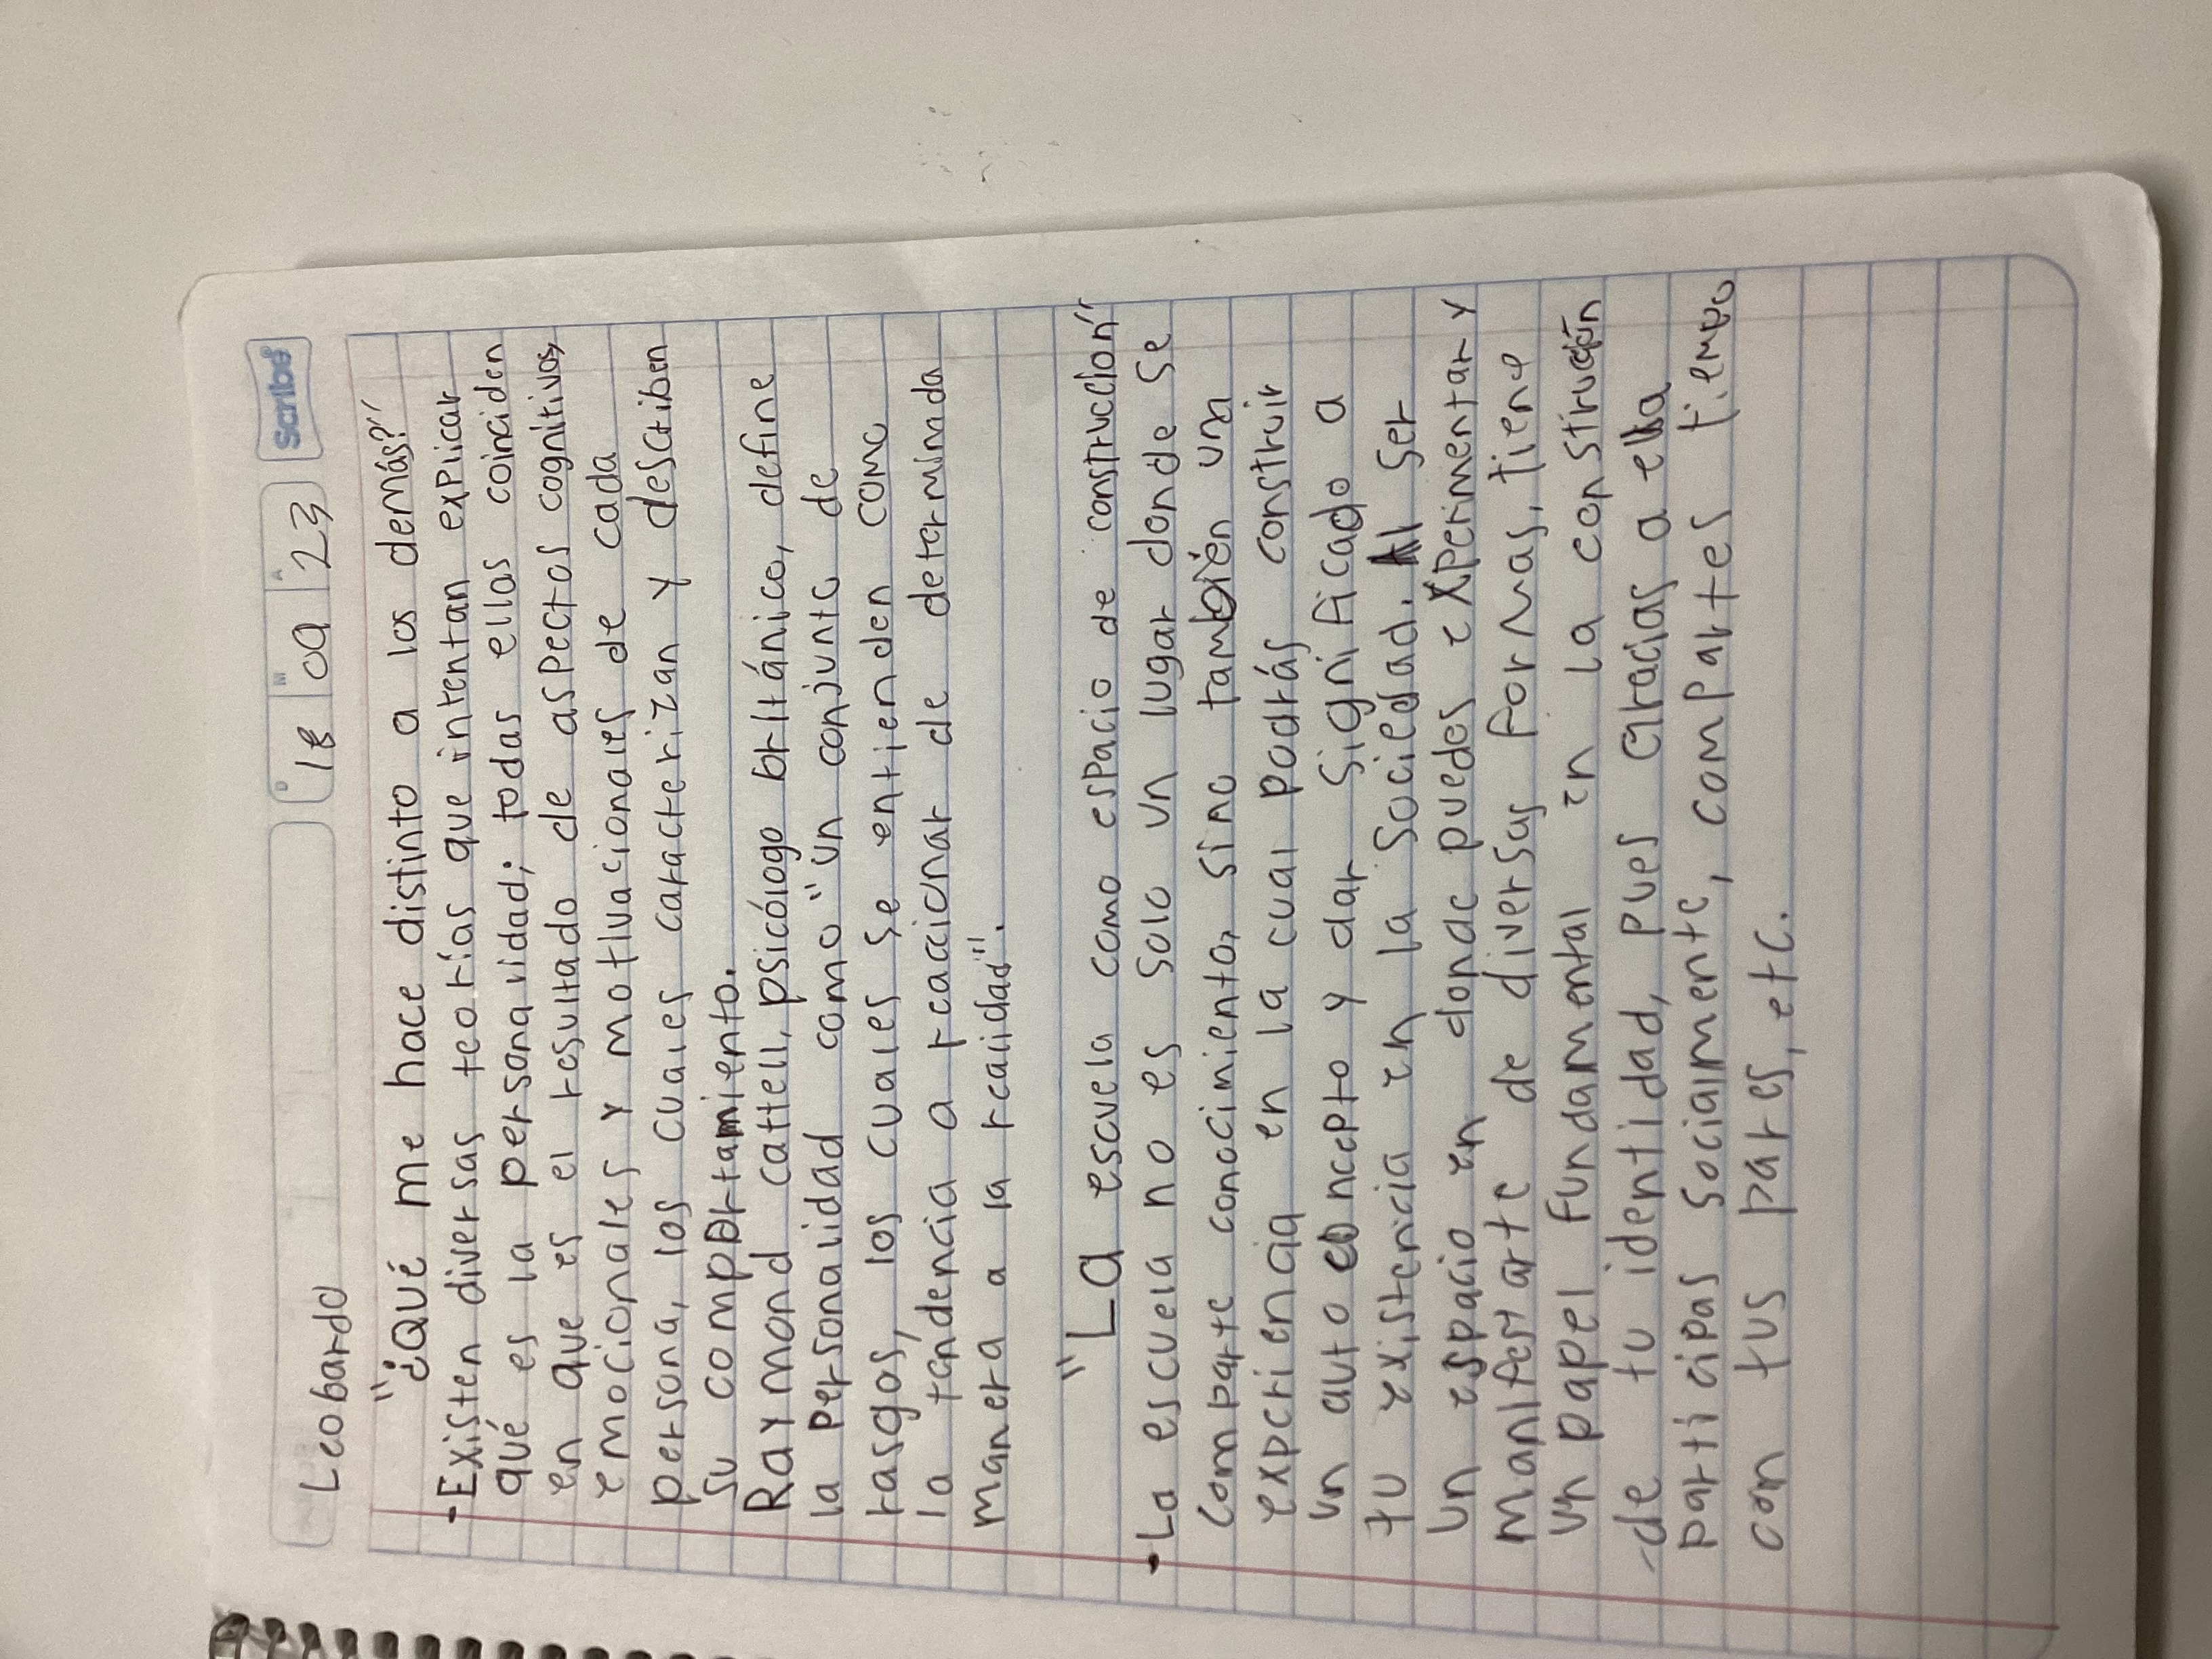 D M A
18 09 23 Scribe
Leobardo
"¿Qué me hace distinto a los demás?"
-Existen diversas teorías que intentan explicar
qué es la personavidad; todas ellas coinciden
en que es el resultado de aspectos cognitivos,
emocionales y motivacionales de cada
persona, los cuales caracterizan y describen
su comportamiento.
Raymond cattell, psicólogo británico, define
la personalidad como "un conjunto de
rasgos, los cuales se entienden como
la tendencia a reaccionar de determinada
manera a la realidad".
"La escuela como espacio de construcción"
-La escuela no es solo un lugar donde se
comparte conocimiento, sino también una
experiencia en la cual podrás construir
un auto concepto y dar significado a
tu existencia en la sociedad. Al ser
un espacio en donde puedes experimentar y
manifestarte de diversas formas, tiene
un papel fundamental en la construcción
de tu identidad, pues gracias a ella
participas socialmente, compartes tiempo
con tus pares, etc.